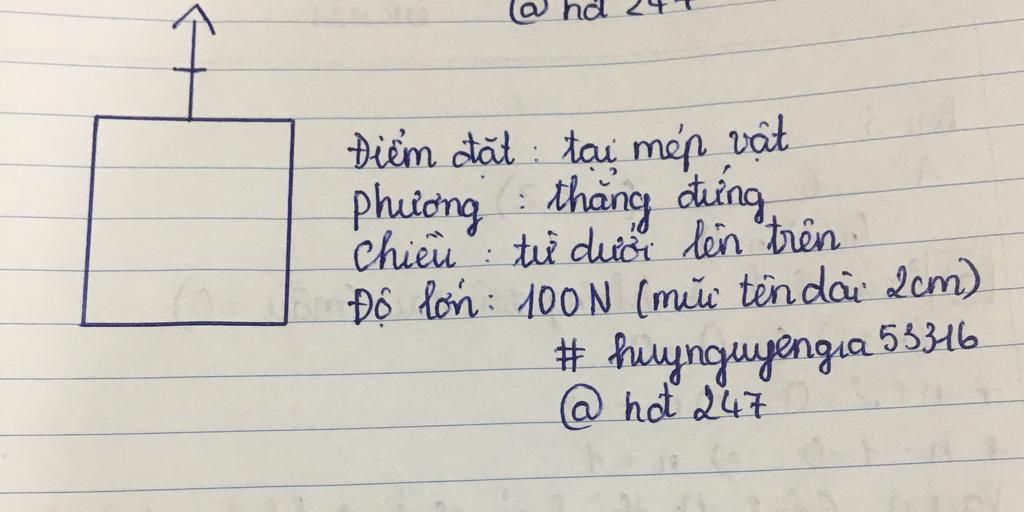 @ hdt 247
Điểm đặt : tại mép vật
phương : thẳng đứng
Chiều : từ dưới lên trên
Độ lớn : 100N (mũi tên dài 2cm)
# huynguyengia53316
@ hdt 247